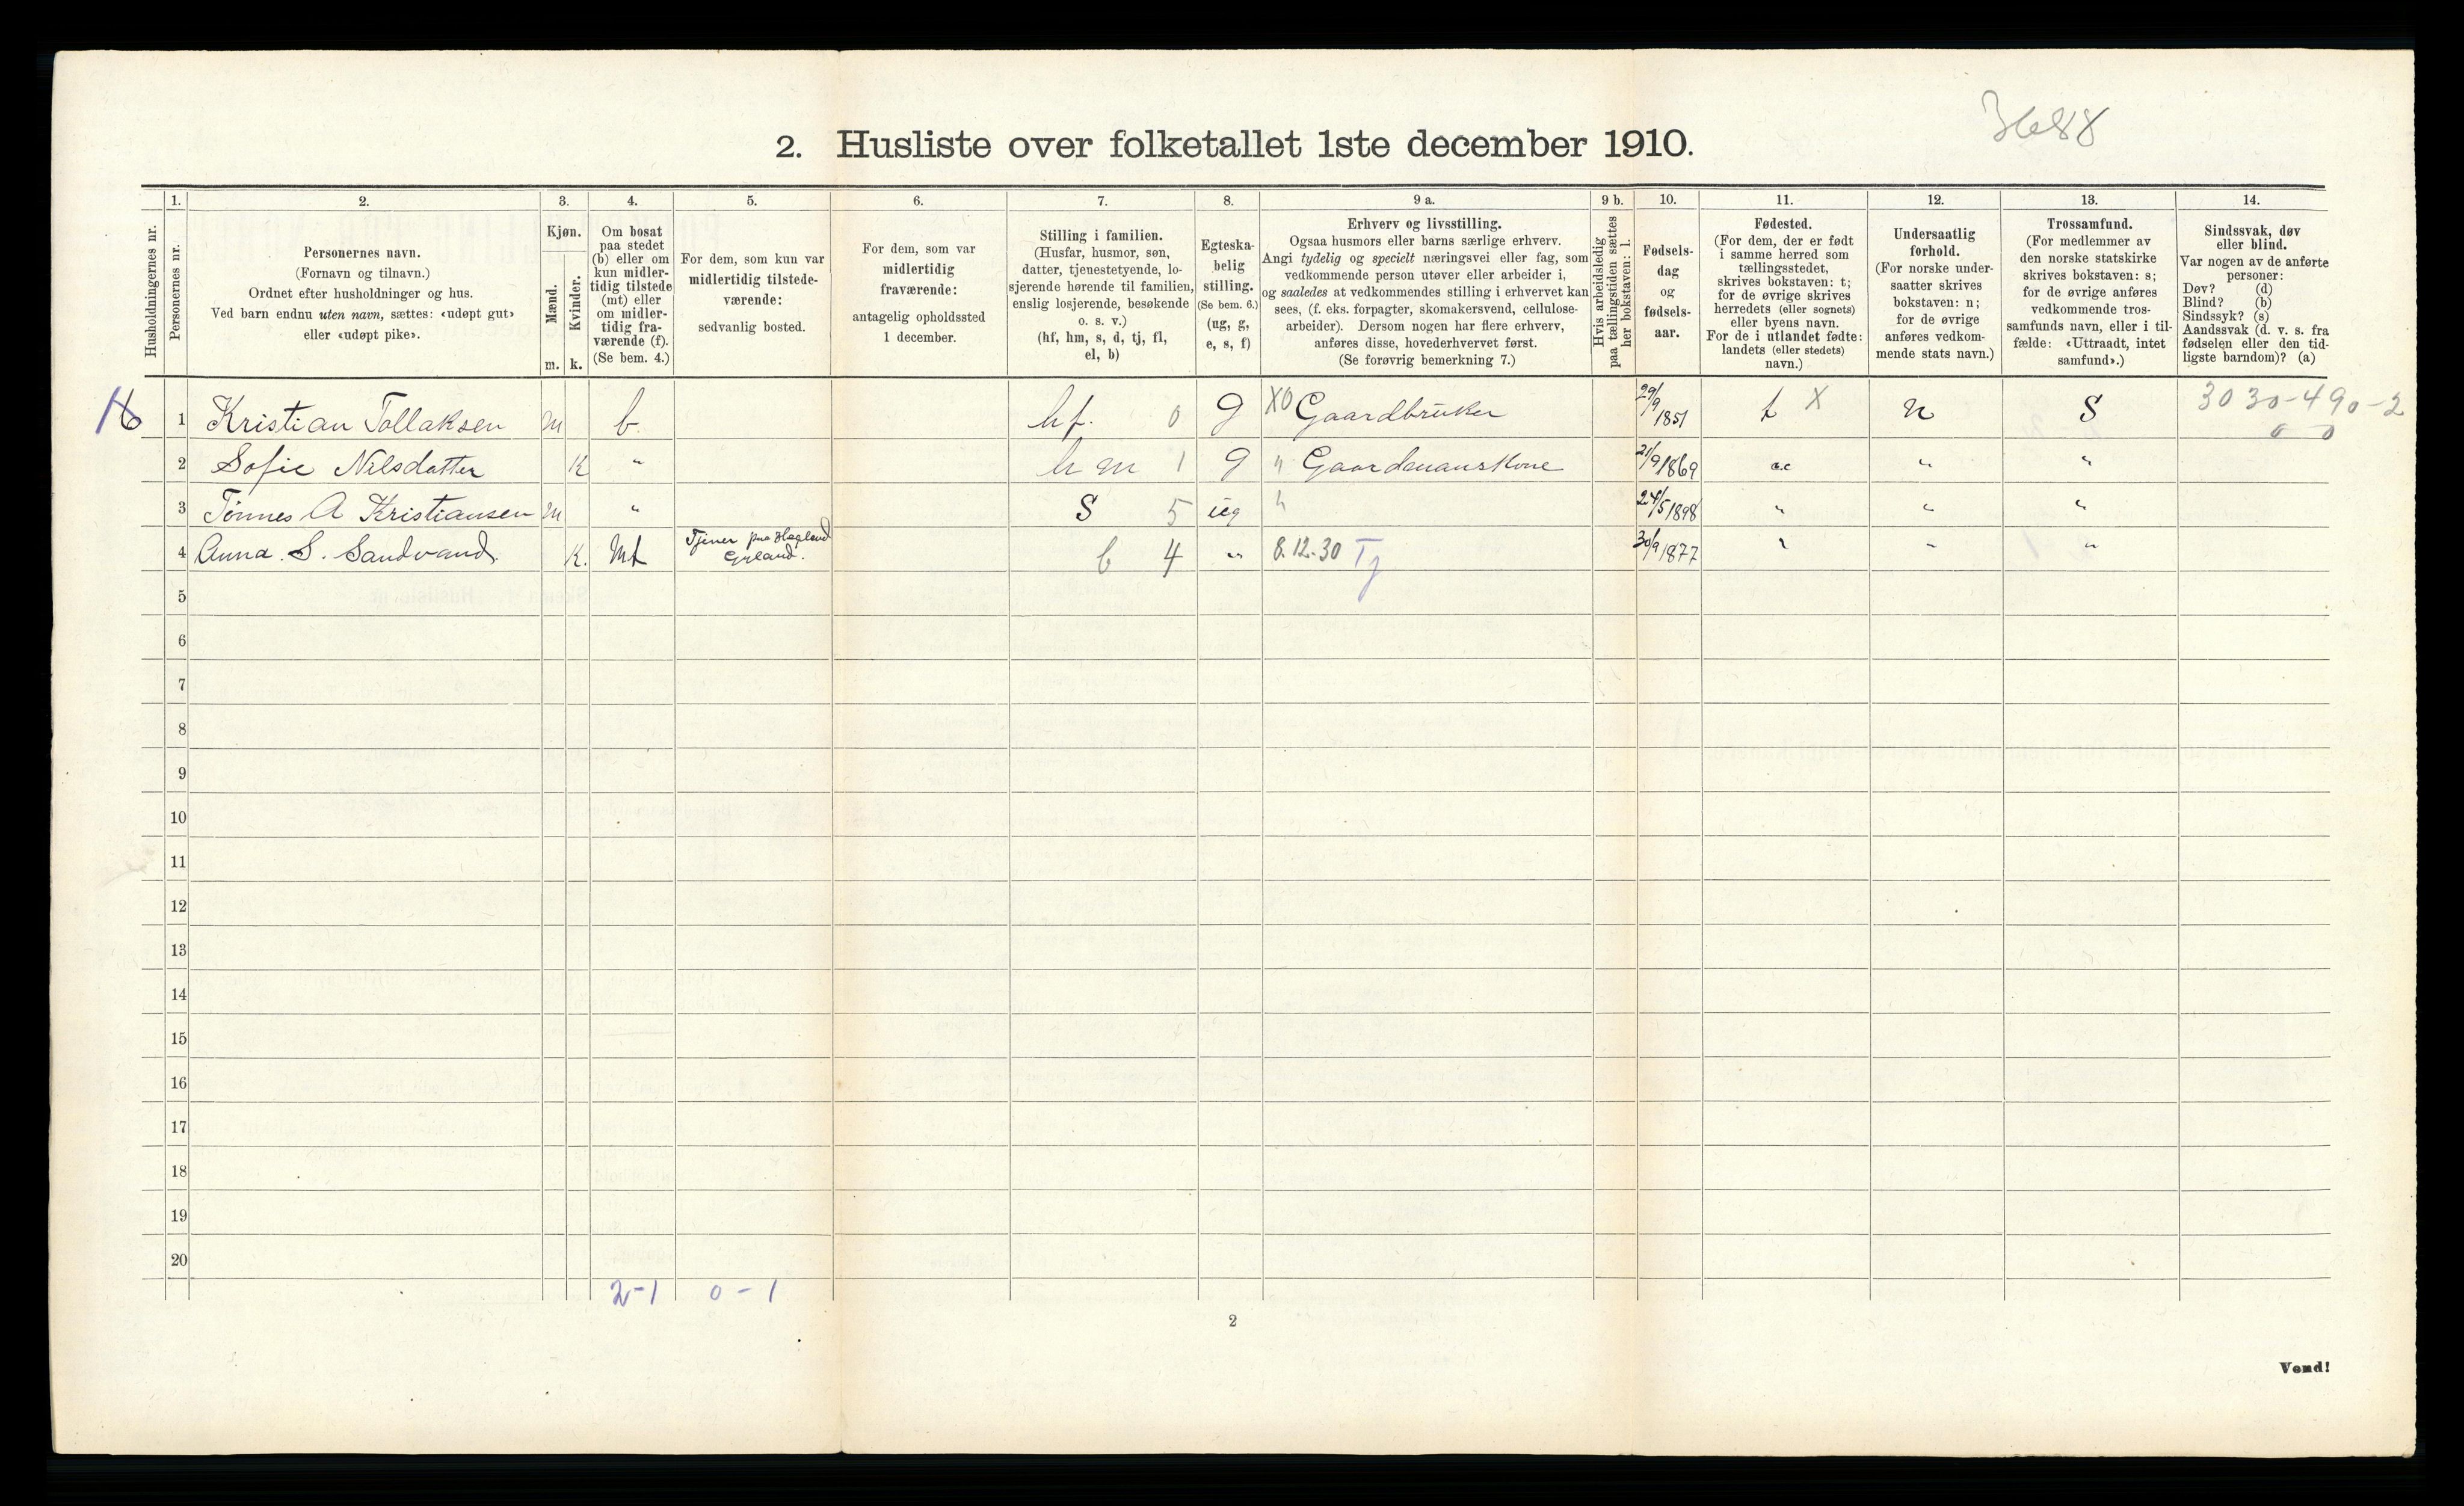 3688
2. Husliste over folketallet 1ste december 1910.
1. 2. 3. 4. 5. 6. 7. 8. 9 a. 9 b. 10. 11. 12. 13. 14.
Husholdningernes nr.
Personernes nr.
Personernes navn.
(Fornavn og tilnavn.)
Ordnet efter husholdninger og hus.
Ved barn endnu uten navn, sættes: «udøpt gut»
eller «udøpt pike».
Kjøn.
Mænd.
Kvinder.
m. k.
Om bosat
paa stedet
(b) eller om
kun midler-
tidig tilstede
(mt) eller
om midler-
tidig fra-
værende (f).
(Se bem. 4.)
For dem, som kun var
midlertidig tilstede-
værende:
sedvanlig bosted.
For dem, som var
midlertidig
fraværende:
antagelig opholdssted
1 december.
Stilling i familien.
(Husfar, husmor, søn,
datter, tjenestetyende, lo-
sjerende hørende til familien,
enslig losjerende, besøkende
o. s. v.)
(hf, hm, s, d, tj, fl,
el, b)
Egteska-
belig
stilling.
(Se bem. 6.)
(ug, g,
e, s, f)
Erhverv og livsstilling.
Ogsaa husmors eller barns særlige erhverv.
Angi tydelig og specielt næringsvei eller fag, som
vedkommende person utøver eller arbeider i,
og saaledes at vedkommendes stilling i erhvervet kan
sees, (f. eks. forpagter, skomakersvend, cellulose-
arbeider). Dersom nogen har flere erhverv,
anføres disse, hovederhvervet først.
(Se forøvrig bemerkning 7.)
Hvis arbeidsledig
paa tællingstiden sættes
her bokstaven: l.
Fødsels-
dag
og
fødsels-
aar.
Fødested.
(For dem, der er født
i samme herred som
tællingsstedet,
skrives bokstaven: t;
for de øvrige skrives
herredets (eller sognets)
eller byens navn.
For de i utlandet fødte:
landets (eller stedets)
navn.)
Undersaatlig
forhold.
(For norske under-
saatter skrives
bokstaven: n;
for de øvrige
anføres vedkom-
mende stats navn.)
Trossamfund.
(For medlemmer av
den norske statskirke
skrives bokstaven: s;
for de øvrige anføres
vedkommende tros-
samfunds navn, eller i til-
fælde: «Uttraadt, intet
samfund».)
Sindssvak, døv
eller blind.
Var nogen av de anførte
personer:
Døv? (d)
Blind? (b)
Sindssyk? (s)
Aandssvak (d. v. s. fra
fødselen eller den tid-
ligste barndom)? (a)
1 Kristian Tollaksen m b. hf. 0 g X0 Gaardbruker 29/9 1851 t X n S 30 30-490-2
0 0
2 Sofie Nilsdatter K " h m 1 g " Gaardmanskone 21/9 1869 " "
3 Tønnes A Kristiansen m " S 5 ug " 24/5 1898 " " "
4 Anna. S. Sandvand K. Mt Tjener paa Hægland
Gyland. b 4 " 8.12.30 Tj 30/9 1877 " " "
5
6
7
8
9
10
11
12
13
14
15
16
17
18
19
20
2-1 0-1
2
Vend!